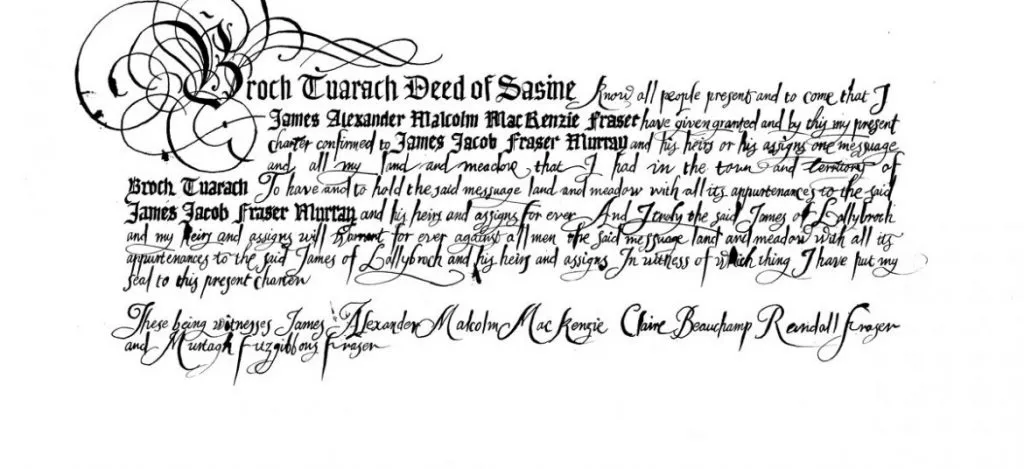 Broch Tuarach Deed of Sasine Know all people present and to come that I
James Alexander Malcolm MacKenzie Fraser have given granted and by this my present
charter confirmed to James Jacob Fraser Murray and his heirs or his assigns one message
and all my land and meadow that I had in the town and territory of
Broch Tuarach To have and to hold the said message land and meadow with all its appurtenances to the said
James Jacob Fraser Murray and his heirs and assigns for ever And I truly the said James of Lallybroch
and my heirs and assigns will warrant for ever against all men the said message land and meadow with all its
appurtenances to the said James of Lallybroch and his heirs and assigns In witness of which thing I have put my
seal to this present charter
These being witnesses James Alexander Malcolm MacKenzie Claire Beauchamp Randall Fraser
and Murtagh Fitzgibbons Fraser